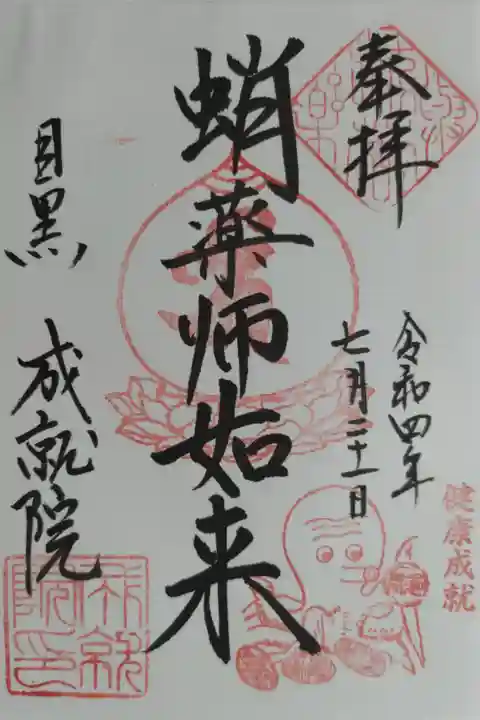 奉拝
令和四年
七月二十一日
蛸薬師如来
目黒 成就院
健康成就